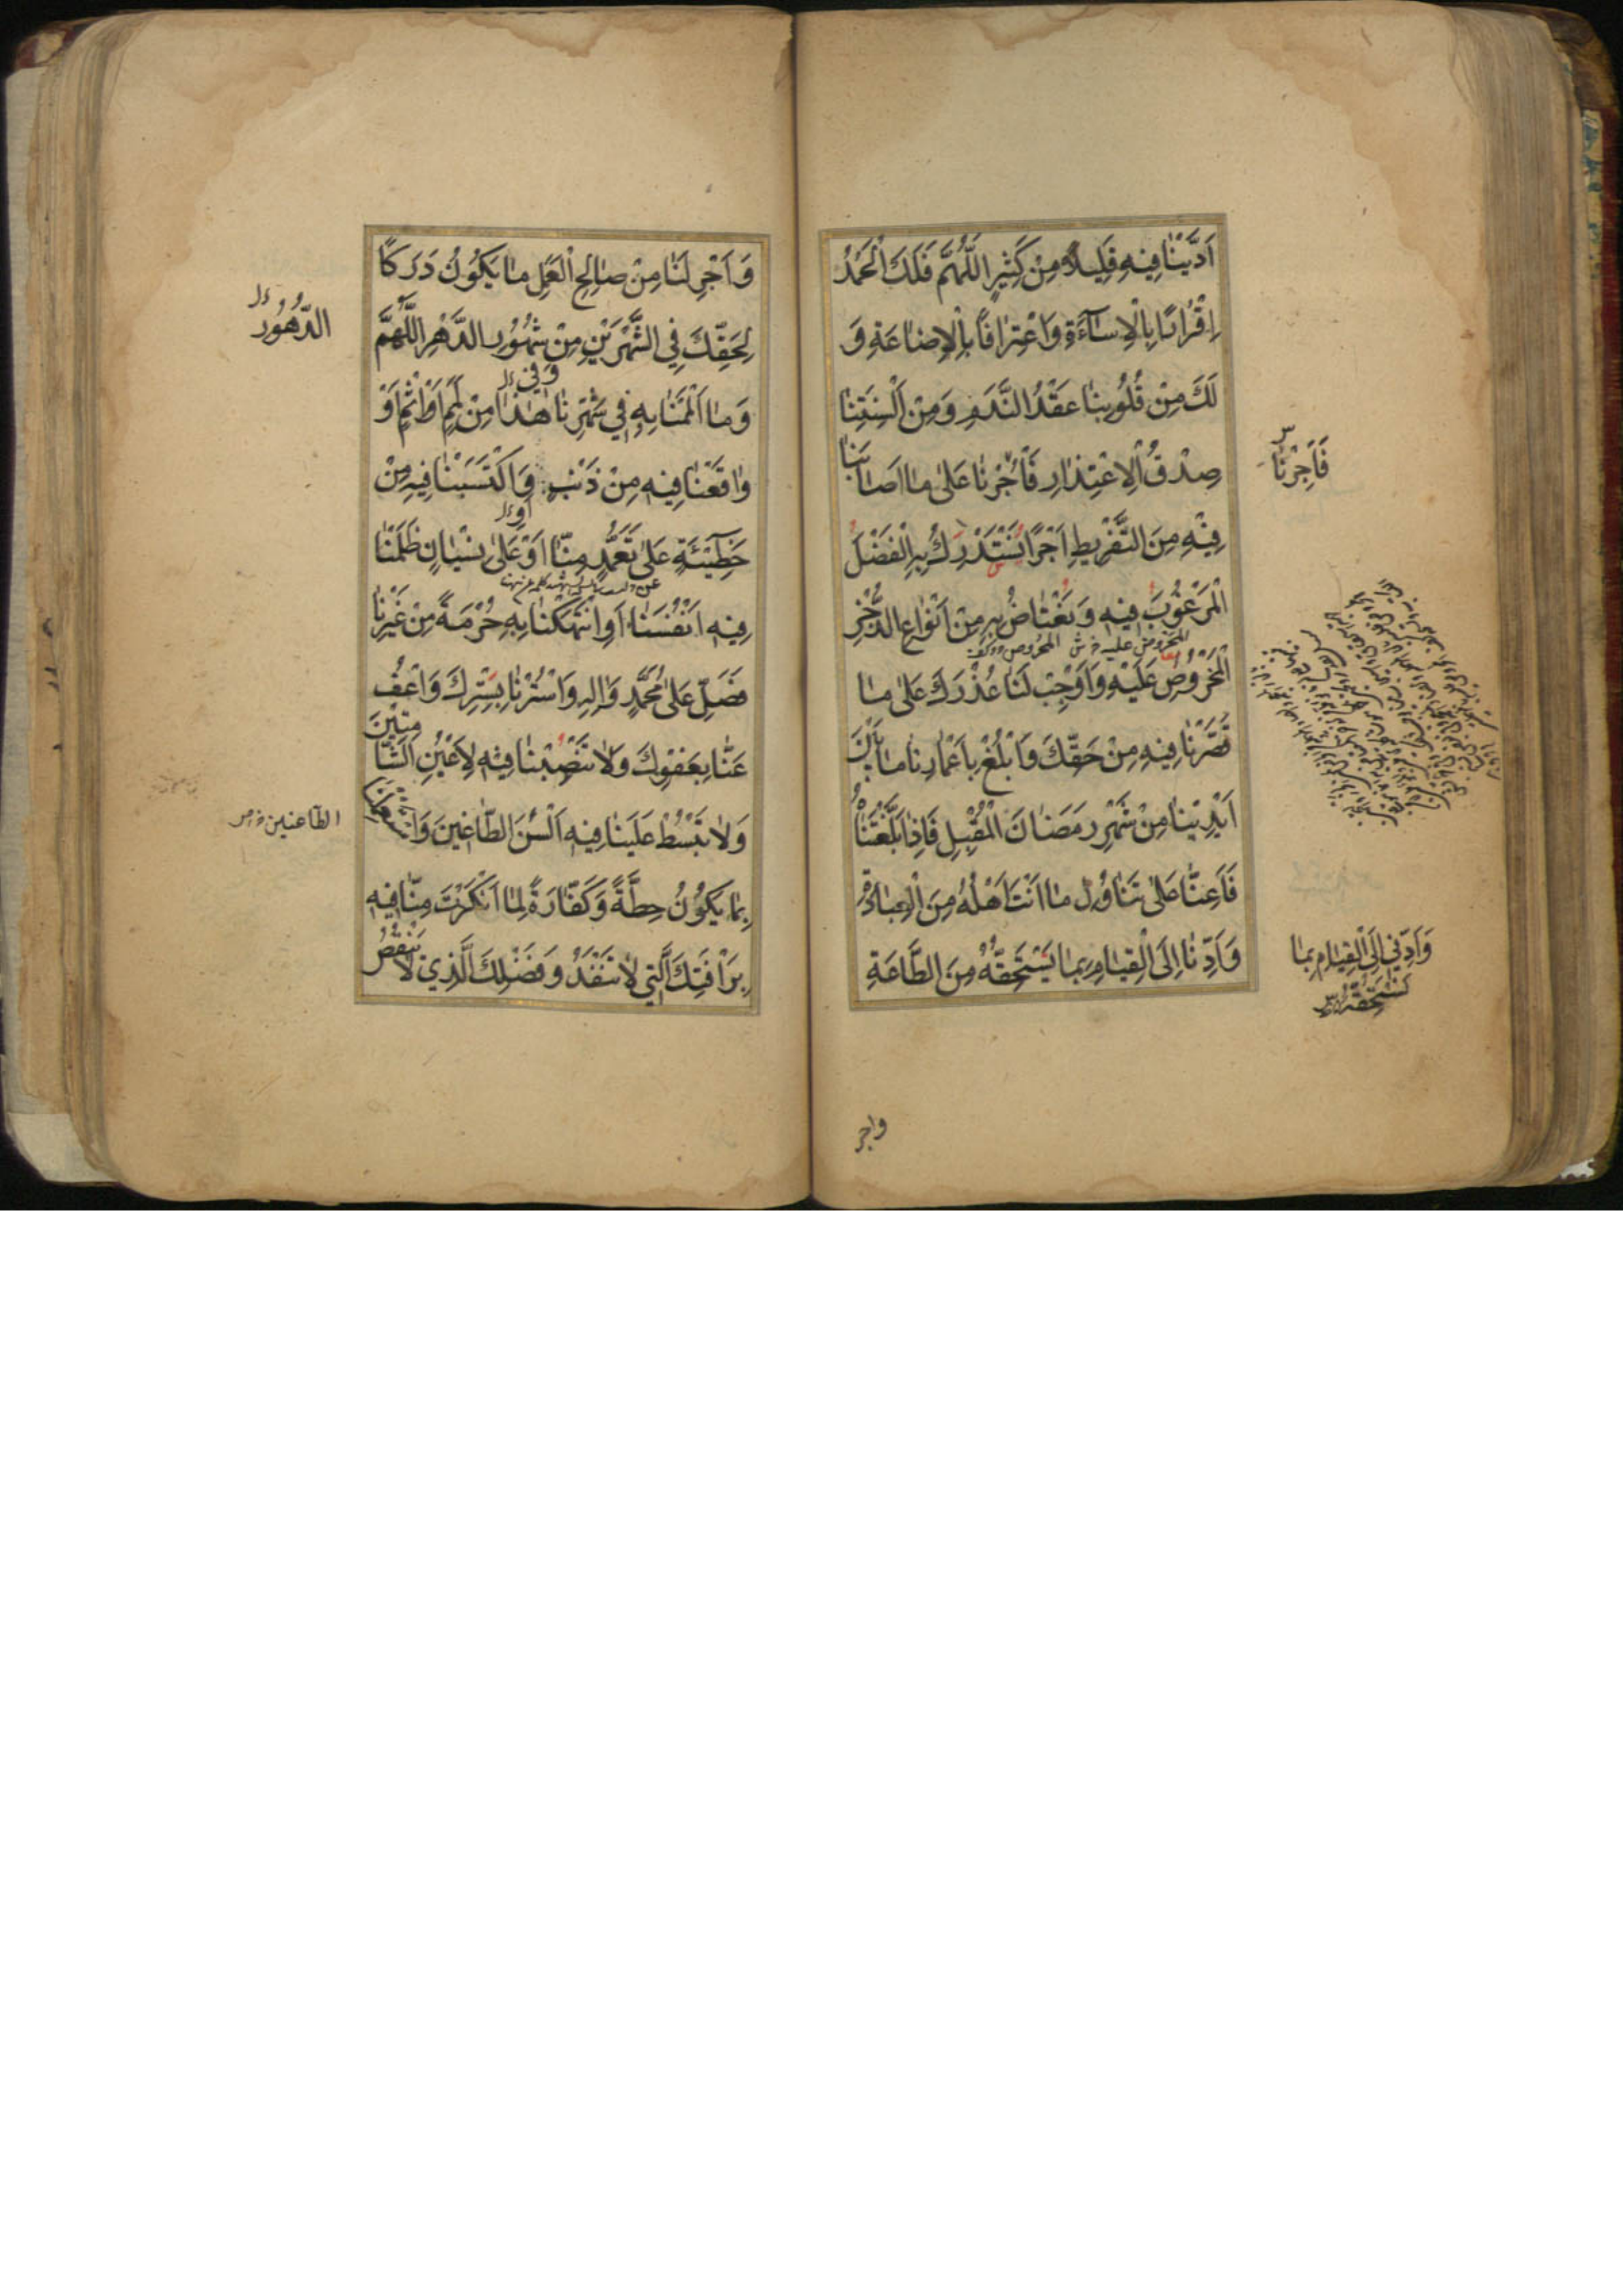 اَدَّيْنٰا فِيهِ قَلِيلاً مِنْ كَثِيرٍ اَللّٰهُمَّ فَلَكَ الْحَمْدُ
اِقْرٰارًا بِالْاِسٰآءَةِ وَاعْتِرٰافًا بِالْاِضٰاعَةِ وَ
لَكَ مِنْ قُلُوبِنٰا عَقْدُ النَّدَمِ وَمِنْ اَلْسِنَتِنٰا
صِدْقُ الْاِعْتِذٰارِ فَأْجُرْنٰا عَلىٰ مٰا اَصٰابَنٰا
فَاَجِرْنٰا
فِيْهِ مِنَ التَّفْرِيطِ اَجْرًا يُسْتَدْرَكُ بِهِ الْفَضْلَ
الْمَرْغُوْبَ فِيهِ وَنَعْتٰاضُ بِهِ مِنْ اَنْوٰاعِ الذُّخْرِ
الْمَحْرُوصِ عَلَيْهِ وَاَوْجِبْ لَنٰا عُذْرَكَ عَلىٰ مٰا
قَصَّرْنٰا فِيهِ مِنْ حَقِّكَ وَابْلُغْ بِاَعْمٰارِنٰا مٰا بَيْنَ
اَيْدِيْنٰا مِنْ شَهْرِ رَمَضٰانَ الْمُقْبِلِ فَاِذٰا بَلَّغْتَنٰاهُ
فَاَعِنّٰا عَلىٰ تَنٰاوُلِ مٰا اَنْتَ اَهْلُهُ مِنَ الْعِبٰادَةِ
وَاَدِّنٰا اِلَى الْقِيٰامِ بِمٰا يَسْتَحِقُّهُ مِنَ الطَّاعَةِ
وَاَدِّنِي اِلَى الْقِيٰامِ بِمٰا
واجر
وَاَجْرِ لَنٰا مِنْ صٰالِحِ الْعَمَلِ مٰا يَكُوْنُ دَرَكًا
لِحَقِّكَ فِي الشَّهْرَيْنِ مِنْ شُهُوْرِ الدَّهْرِ اَللّٰهُمَّ
الدُّهُورِ
وَمٰا اَلْمَمْنٰا بِهِ فِي شَهْرِنٰا هٰذٰا مِنْ لَمَمٍ اَوْ اِثْمٍ اَوْ
وٰاقَعْنٰا فِيهِ مِنْ ذَنْبٍ وَاكْتَسَبْنٰا فِيهِ مِنْ
خَطِيْئَةٍ عَلىٰ تَعَمُّدٍ مِنّٰا اَوْ عَلىٰ نِسْيٰانٍ ظَلَمْنٰا
فِيهِ اَنْفُسَنٰا اَوِ انْتَهَكْنٰا بِهِ حُرْمَةً مِنْ غَيْرِنٰا
فَصَلِّ عَلىٰ مُحَمَّدٍ وَاٰلِهِ وَاسْتُرْنٰا بِسِتْرِكَ وَاعْفُ
عَنّٰا بِعَفْوِكَ وَلاٰ تَنْصِبْنٰا فِيْهِ لِاَعْيُنِ الشّٰامِتِيْنَ
وَلاٰ تَبْسُطْ عَلَيْنٰا فِيهِ اَلْسُنَ الطّٰاغِينَ وَاسْتَعْمِلْنٰا
الطّاعنين
بِمٰا يَكُوْنُ حِطَّةً وَكَفّٰارَةً لِمٰا اَنْكَرْتَ مِنّٰا فِيهِ
بِرَاْفَتِكَ الَّتِي لاٰ تَنْفَدُ وَفَضْلِكَ الَّذِي لاٰ يَنْقُصُ